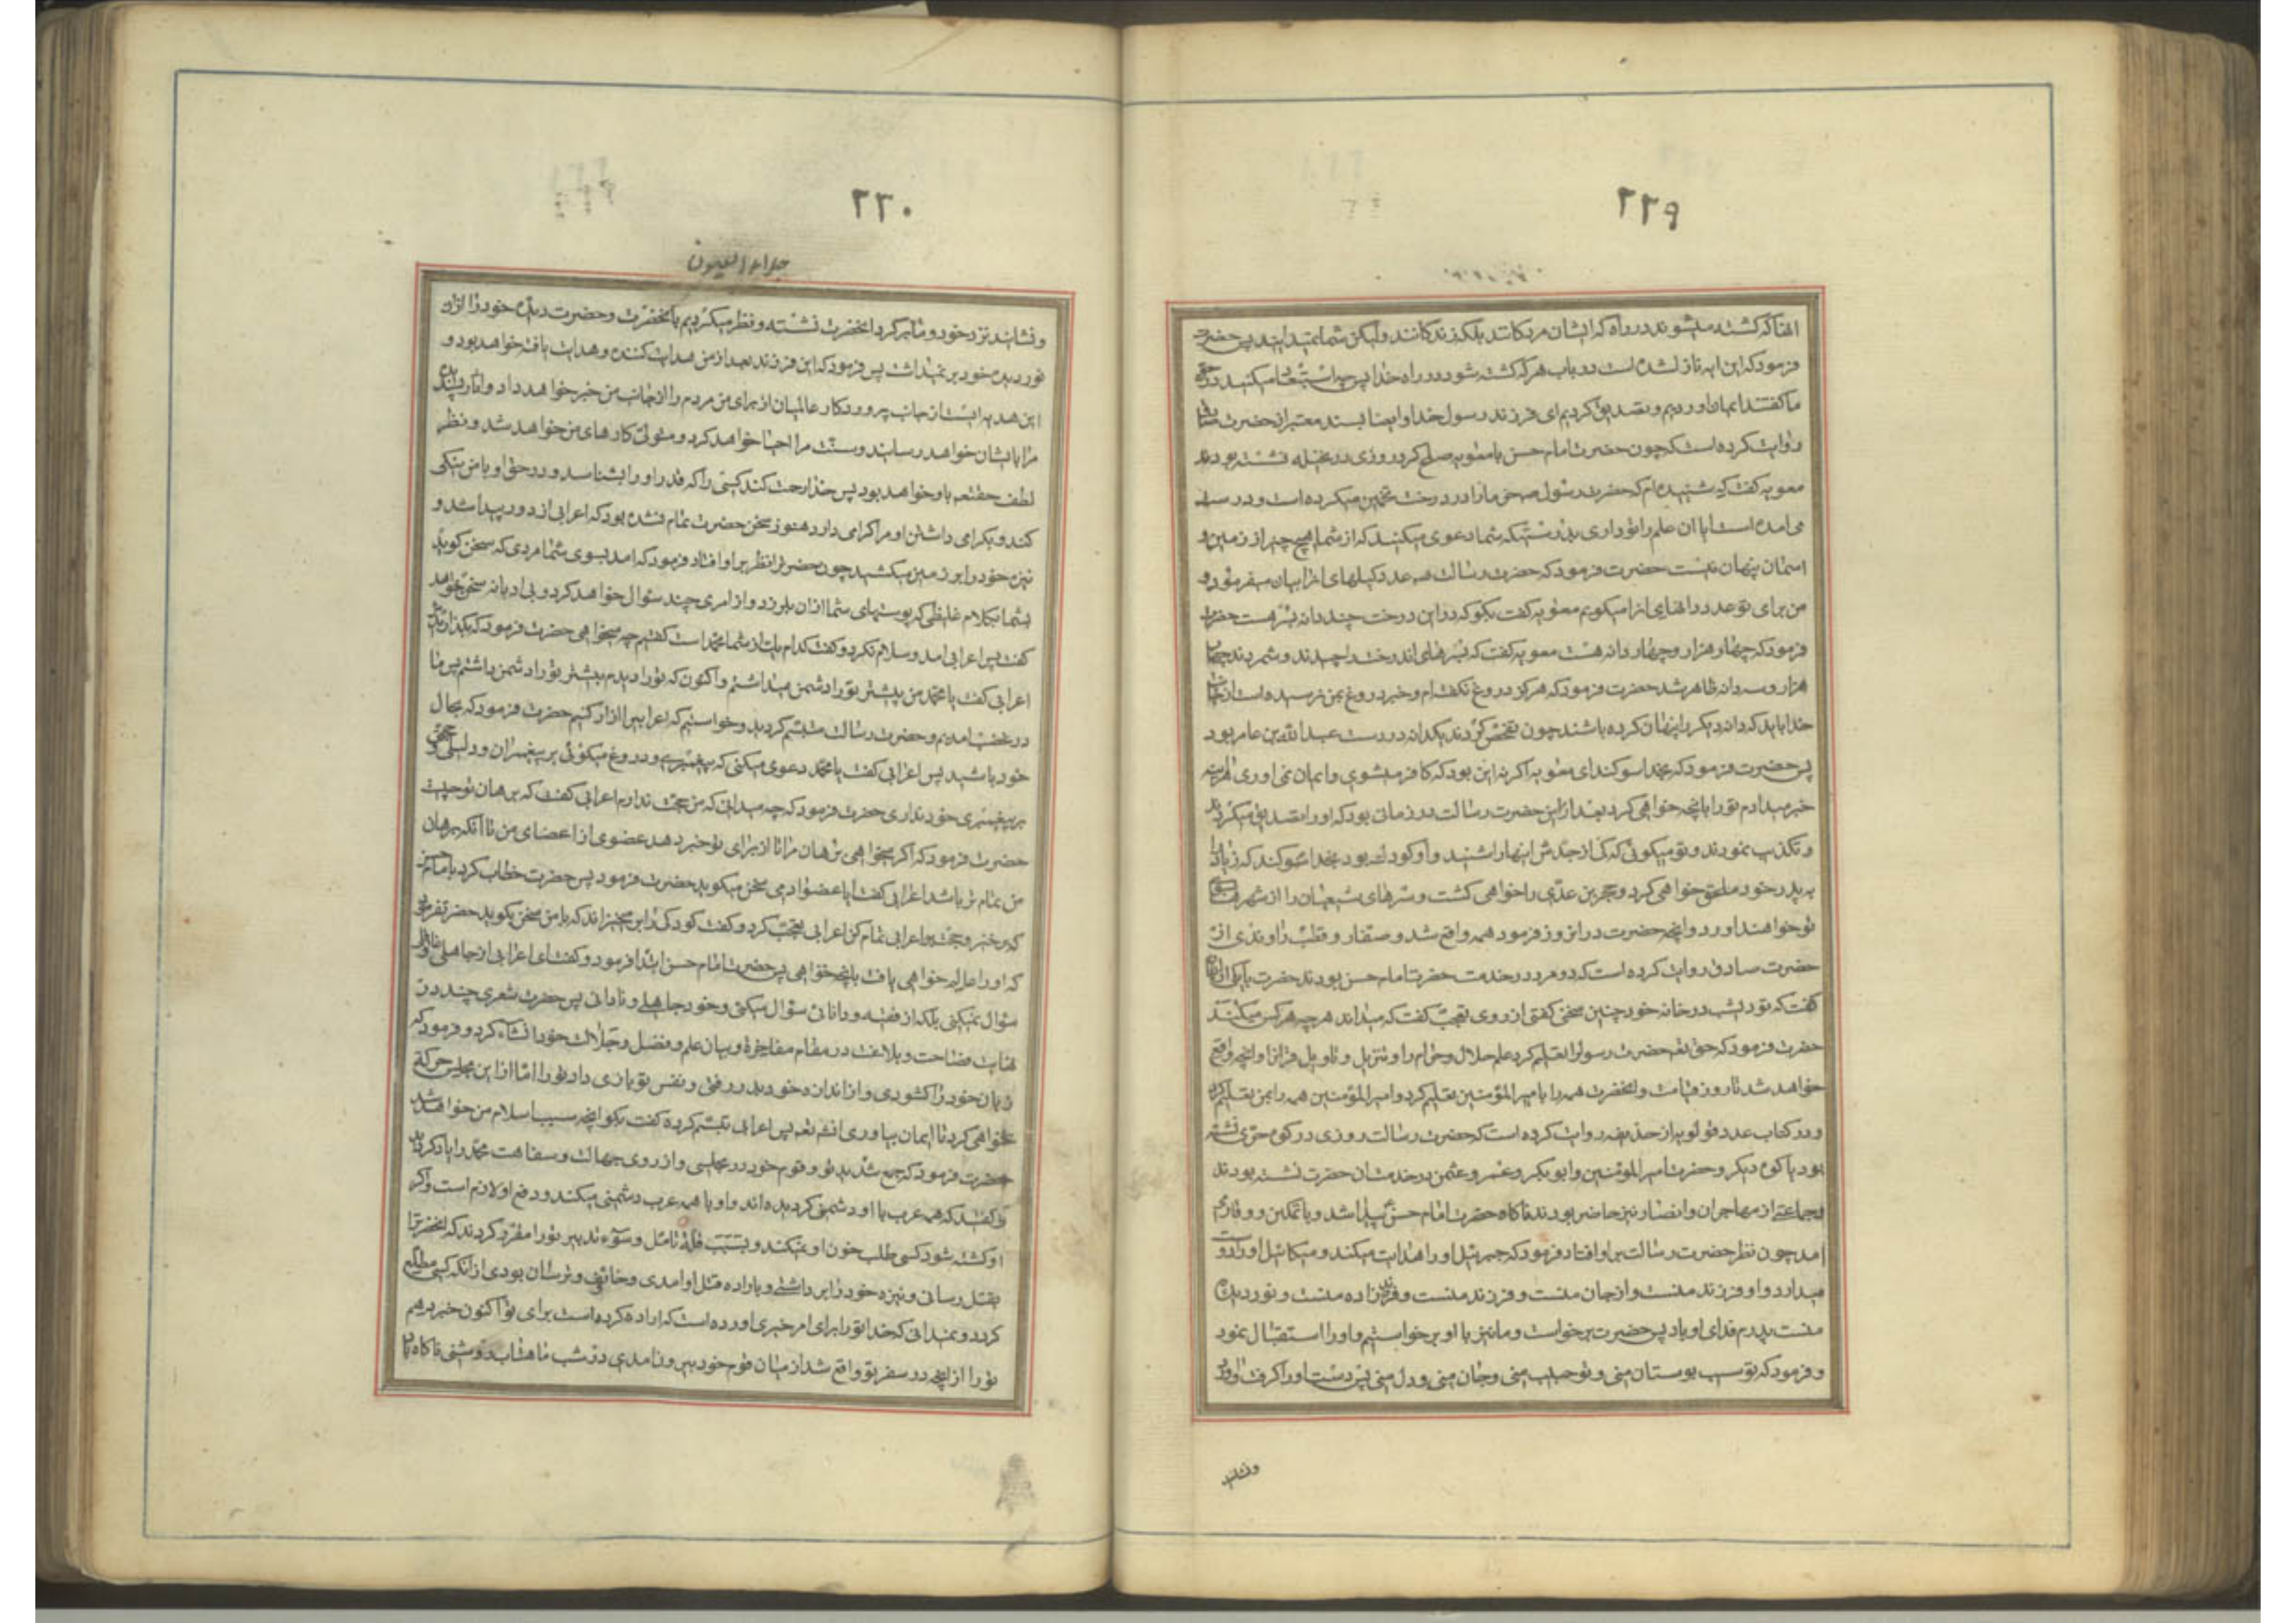 ۲۲۹
انها که کشته میشوند در راه که ایشان مردکانند بلکه زندکانند ولیکن شما نمیدانید پس حضرت
فرمود که این ایه نازل شده است در باب هر که کشته شود در راه خدا پس چه استبعاد میکنید در حق
ما کفتند ایمان اوردیم و تصدیق کردیم ای فرزند رسول خدا و ایضا بسند معتبر از حضرت صادق
روایت کرده است که چون حضرت امام حسن با معویه صلح کرد روزی در نخیله نشسته بودند
معویه کفت که شنیده ام که حضرت رسول ص خرما را در درخت تخمین میکرده است و درست
می امده است ایا ان علم را تو داری بدرستیکه شیعه شما دعوی میکنند که از شما هیچ چیز از زمین و
اسمان پنهان نیست حضرت فرمود که حضرت رسالت ص عدد کیلهای انرا بیان میفرمود و
من برای تو عدد دانهای انرا میکویم معویه کفت بکو که در این درخت چند دانه بسر هست حضرت
فرمود که چهار هزار و چهار دانه هست معویه کفت که بسرهای اندرخت را چیدند و شمردند چهار
هزار و سه دانه ظاهر شد حضرت فرمود که هرکز دروغ نکفته ام و خبر دروغ بمن نرسیده است از جانب
خدا باید که دانه دیکر را پنهان کرده باشند چون تفحص کردند یکدانه در دست عبد الله بن عامر بود
پس حضرت فرمود که بخدا سوکند ای معویه اکر نه این بود که کافر میشوی و ایمان نمی اوری هراینه
خبر میدادم تو را بانچه خواهی کرد بعد از این حضرت رسالت در زمانی بود که او را تصدیق میکردند
و تکذیب نمودند و تو میکوئی که کی از جدش اینها را شنید و او کودک بود بخدا سوکند که زیاد را
به پدر خود ملحق خواهی کرد و حجر بن عدی را خواهی کشت و سرهای شیعیان را از شهرها بسوی
تو خواهند اورد و انچه حضرت در انروز فرمود همه واقع شد و صفار و قطب راوندی از
حضرت صادق روایت کرده است که دو مرد در خدمت حضرت امام حسن بودند حضرت با یکی از ایشان
کفت که تو دیشب در خانه خود چنین سخنی کفتی از روی تعجب کفت که میداند هر چه هر کس میکند
حضرت فرمود که حق تعالی حضرت رسول را تعلیم کرد علم حلال و حرام را و تنزیل و تاویل قرانرا و انچه واقع
خواهد شد تا روز قیامت و انحضرت همه را بامیر المؤمنین تعلیم کرد و امیر المؤمنین همه را بمن تعلیم کرد
و در کتاب عدد قولویه از حذیفه روایت کرده است که حضرت رسالت روزی در کوه حری نشسته
بود یا کوه دیکر و حضرت امیر المؤمنین و ابو بکر و عمر و عثمن در خدمت ان حضرت نشسته بودند
و جماعتی از مهاجران و انصار نیز حاضر بودند ناکاه حضرت امام حسن پیدا شد و با تمکین و وقار می
امد چون نظر حضرت رسالت بر او افتاد فرمود که جبرئیل او را هدایت میکند و میکائیل او را درست
میدارد و او فرزند منست و از جان منست و فرزند منست و فرزند زاده منست و نور دیده
منست پدرم فدای او باد پس حضرت برخواست و ما نیز با او برخواستیم و او را استقبال نمود
و فرمود که تو سیب بوستان منی و تو حبیب منی و جان منی و دل منی پس دست او را کرفت و اورد
و نشاند
۲۳۰
جلاء العیون
و نشاند نزد خود و ما بر کرد انحضرت نشسته و نظر میکردیم بانحضرت و حضرت دیده خود را از ان
نور دیده خود بر نمیداشت پس فرمود که این فرزند بعد از من هدایت کننده و هدایت یافته خواهد بود و
این هدیه ایست از جانب پروردکار عالمیان از برای من مردم را از جانب من خبر خواهد داد و اثار پسندیده
مرا بایشان خواهد رسانید و سنت مرا احیا خواهد کرد و متولی کارهای من خواهد شد و نظر
لطف حقتعم باو خواهد بود پس خدا رحمت کند کسی را که قدر او را بشناسد و در حق او با من نیکی
کند و بکرامی داشتن او مرا کرامی دارد هنوز سخن حضرت تمام نشده بود که اعرابی از دور پیدا شد و
نیزه خود را بر زمین میکشید چون حضرترا نظر بر او افتاد فرمود که امد بسوی شما مردی که سخن کوید
بشما بکلام غلیظی که پوستهای شما از ان بلرزد و از امری چند سئوال خواهد کرد و بی ادبانه سخن خواهد
کفت پس اعرابی امد و سلام نکرد و کفت کدام یک از شما محمد است کفتیم چه میخواهی حضرت فرمود که بکذاریدش
اعرابی کفت یا محمد من پیشتر تو را دشمن میداشتم و اکنون که تو را دیدم بیشتر تو را دشمن داشتم پس ما
در غضب امدیم و حضرت رسالت متبسم کردید و خواستیم که اعرابیرا ازار کنیم حضرت فرمود که بحال
خود باشید پس اعرابی کفت یا محمد دعوی میکنی که پیغمبری و دروغ میکوئی بر پیغمبران و دلیلی و حجتی
بر پیغمبری خود نداری حضرت فرمود که چه میدانی که من حجت ندارم اعرابی کفت که برهان تو چیست
حضرت فرمود که اکر میخواهی برهان مرا تا از برای تو خبر دهد عضوی از اعضای من تا انکه برهان
من تمام تر باشد اعرابی کفت ایا عضو ادمی سخن میکوید حضرت فرمود پس حضرت خطاب کرد بامام حسن
که برخیز و حجت بر اعرابی تمام کن اعرابی تعجب کرد و کفت کودکی را بر میخیزاند که با من سخن بکوید حضرت فرمود
که او را عالم خواهی یافت بانچه خواهی پس حضرت امام حسن ابتدا فرمود و کفت ای اعرابی از جاهلی و غافلی
سئوال نمیکنی بلکه از فقیه و دانائی سؤال میکنی و خود جاهلی و نادانی پس حضرت شعری چند در
نهایت فصاحت و بلاغت در مقام مفاخرة و بیان علم و فضل و جلالت خود انشاء کرد و فرمود که
زبان خود را کشودی و از اندازه خود بدر رفتی و نفس تو بازی داد تو را اما از این مجلس حرکة
نخواهی کرد تا ایمان بیاوری انشم تعه پس اعرابی تبسم کرده کفت بکو انچه سبب اسلام من خواهد شد
حضرت فرمود که جمع شدید تو و قوم خود در مجلسی و از روی جهالت و سفاهت محمد را یاد کردید
و کفتید که همه عرب با او دشمن کردیده اند و او با همه عرب دشمنی میکند و دفع او لازم است و اکر
او کشته شود کسی طلب خون او نمیکند و بسبب قلة تامل و سوء تدبیر تو را مقرر کردند که انحضرترا
بقتل رسانی و نیزه خود را برداشتی و باراده قتل او امدی و خائف و ترسان بودی از انکه کسی مطلع
کردد و نمیدانی که خدا تو را برای امر خیری اورده است که اراده کرده است برای تو اکنون خبر دهم
تو را از انچه در سفر تو واقع شد از میان قوم خود بیرون امدی در شب ماهتاب روشنی ناکاه با